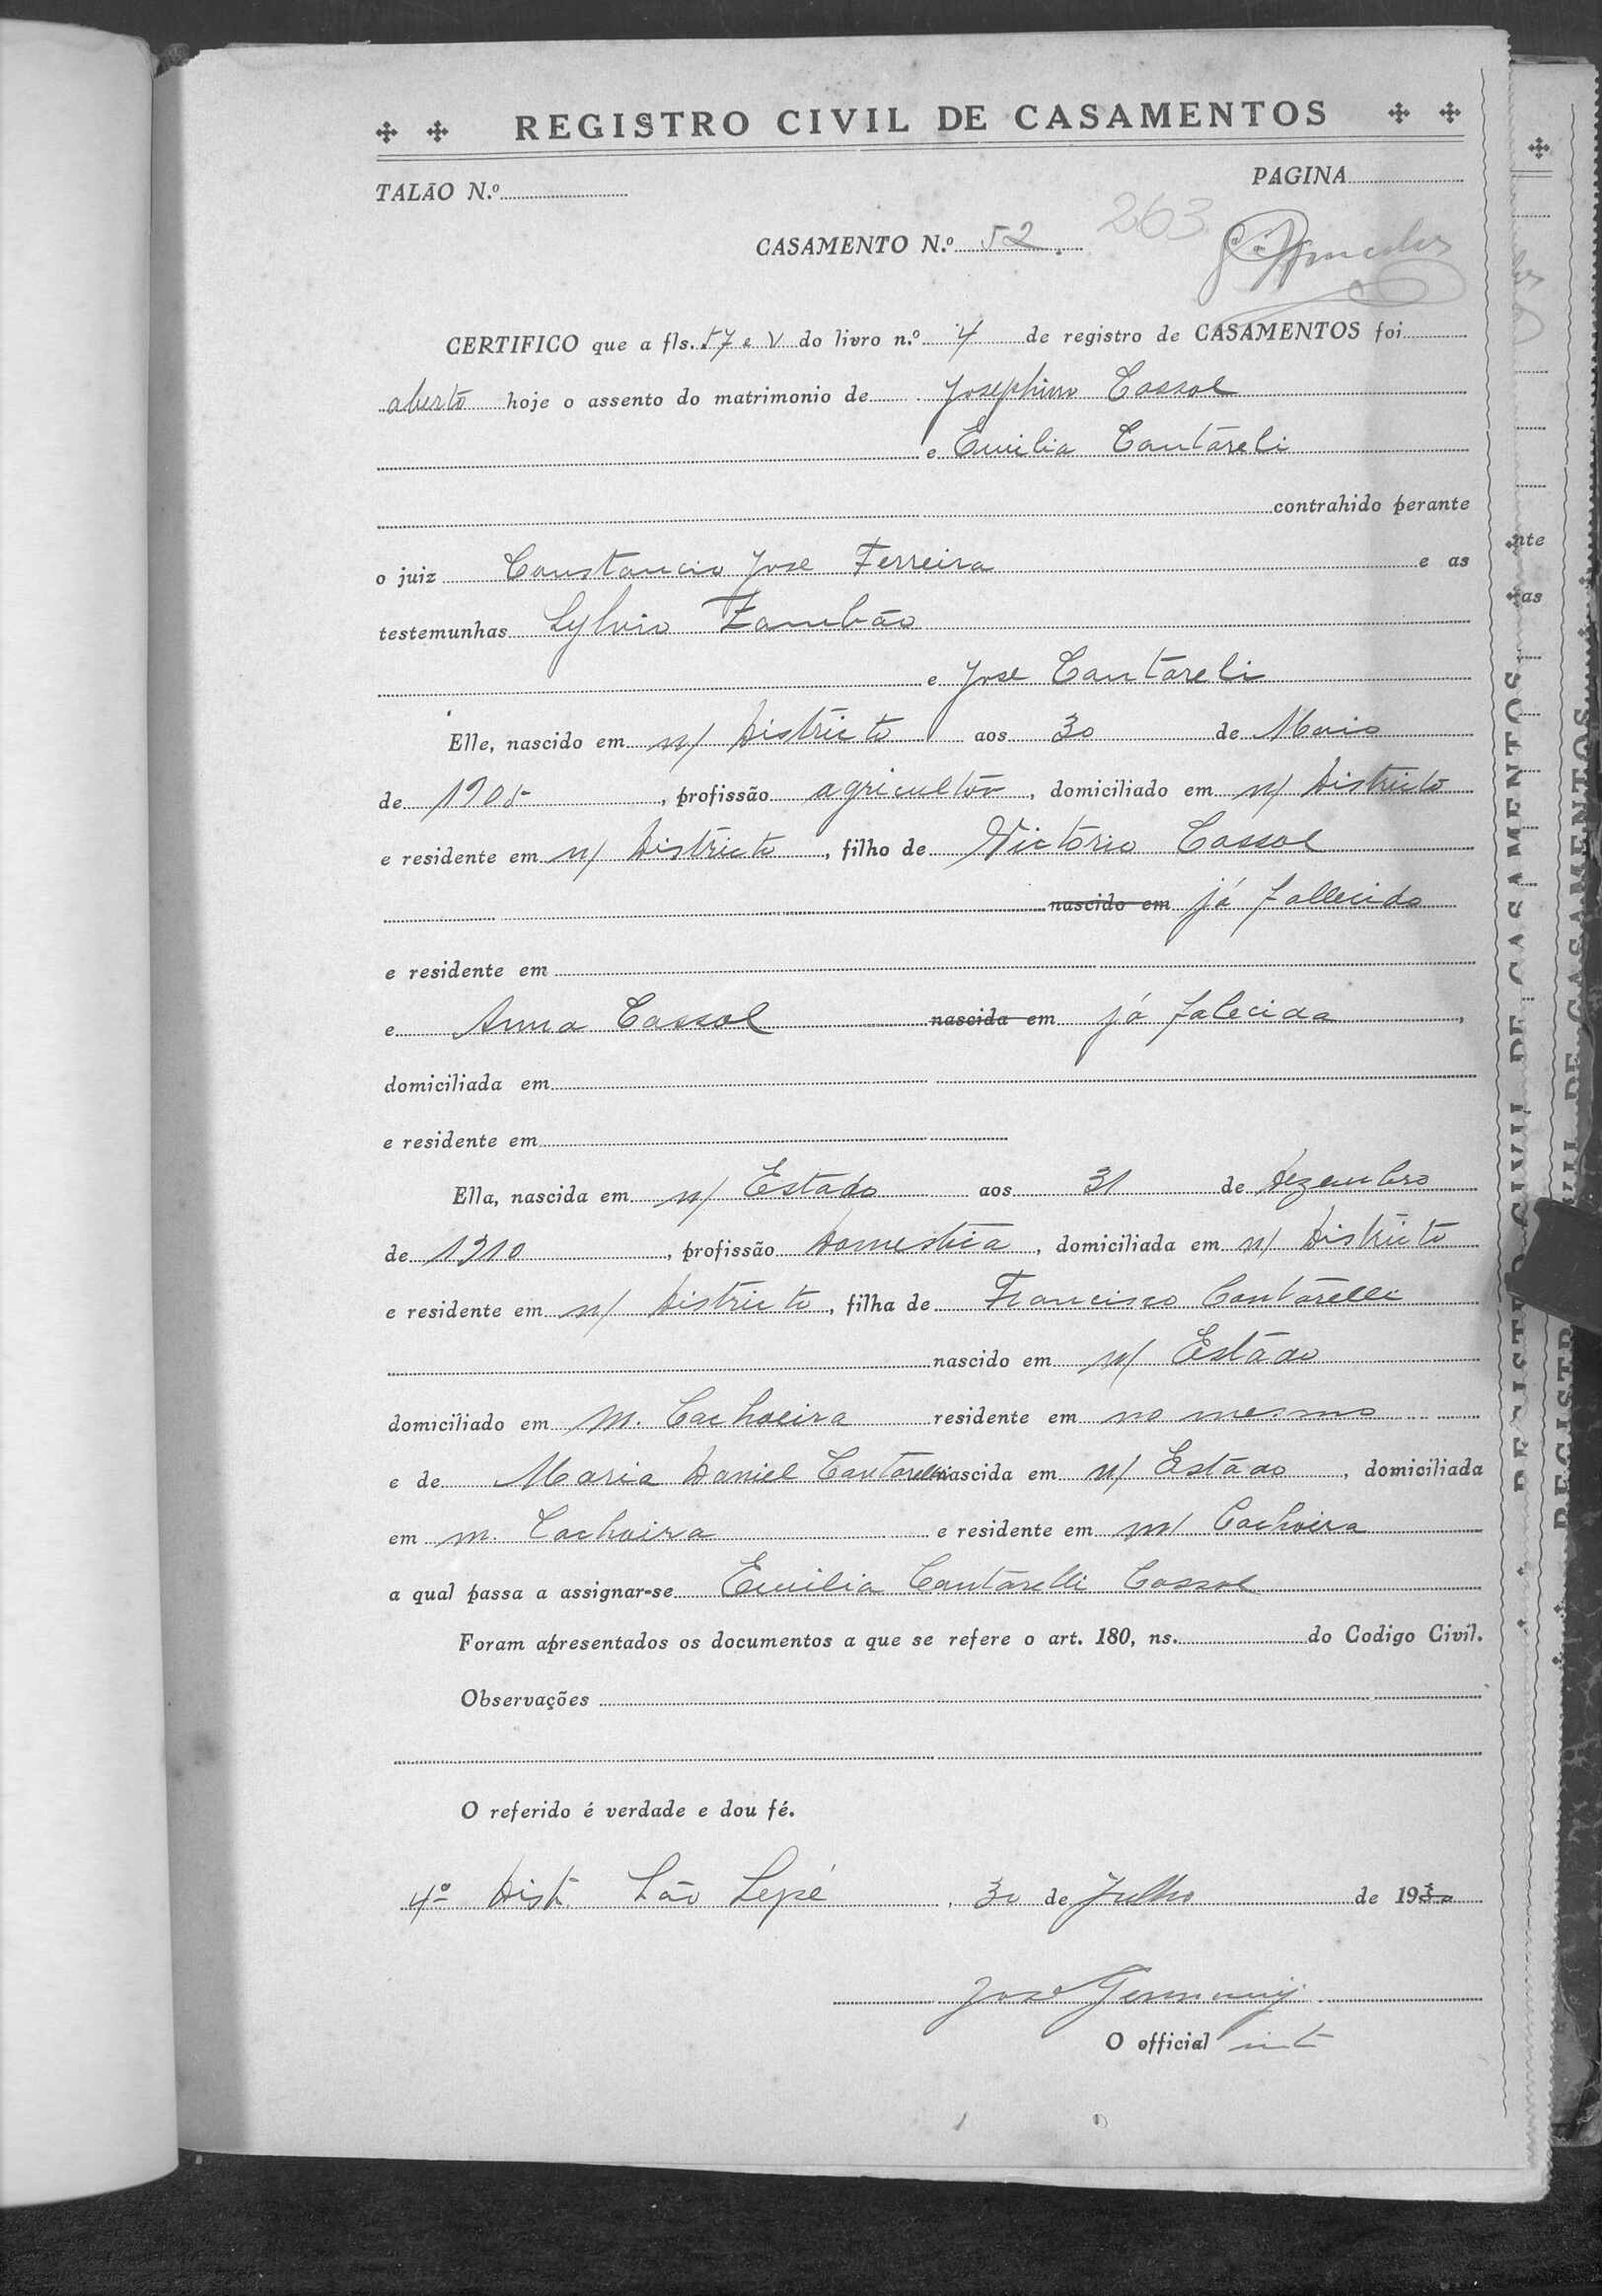 REGISTRO CIVIL DE CASAMENTOS
TALÃO N.º
PAGINA
263
CASAMENTO N.º 52.
CERTIFICO que a fls. 57 e V do livro n.º 4 de registro de CASAMENTOS foi
aberto hoje o assento do matrimonio de Josephino Cassol
e Emilia Cantareli
contrahido perante
o juiz Constancio Jose Ferreira e as
testemunhas Sylvio Zambão
e Jose Cantareli
Elle, nascido em n/ Districto aos 30 de Maio
de 1905, profissão agricultor, domiciliado em n/ Districto
e residente em n/ Districto, filho de Victorio Cassol
nascido em já fallecido
e residente em
e Anna Cassol nascida em já falecida,
domiciliada em
e residente em
Ella, nascida em n/ Estado aos 31 de Dezembro
de 1910, profissão Domestica, domiciliada em n/ Districto
e residente em n/ Districto, filha de Francisco Cantarelli
nascido em n/ Estado
domiciliado em M. Cachoeira residente em no mesmo
e de Maria Daniel Cantarelli nascida em n/ Estado, domiciliada
em m. Cachoeira e residente em m/ Cachoeira
a qual passa a assignar-se Emilia Cantarelli Cassol
Foram apresentados os documentos a que se refere o art. 180, ns. do Codigo Civil.
Observações
O referido é verdade e dou fé.
4º Dist. São Sepé, 30 de Julho de 1930
José Germany
O official int